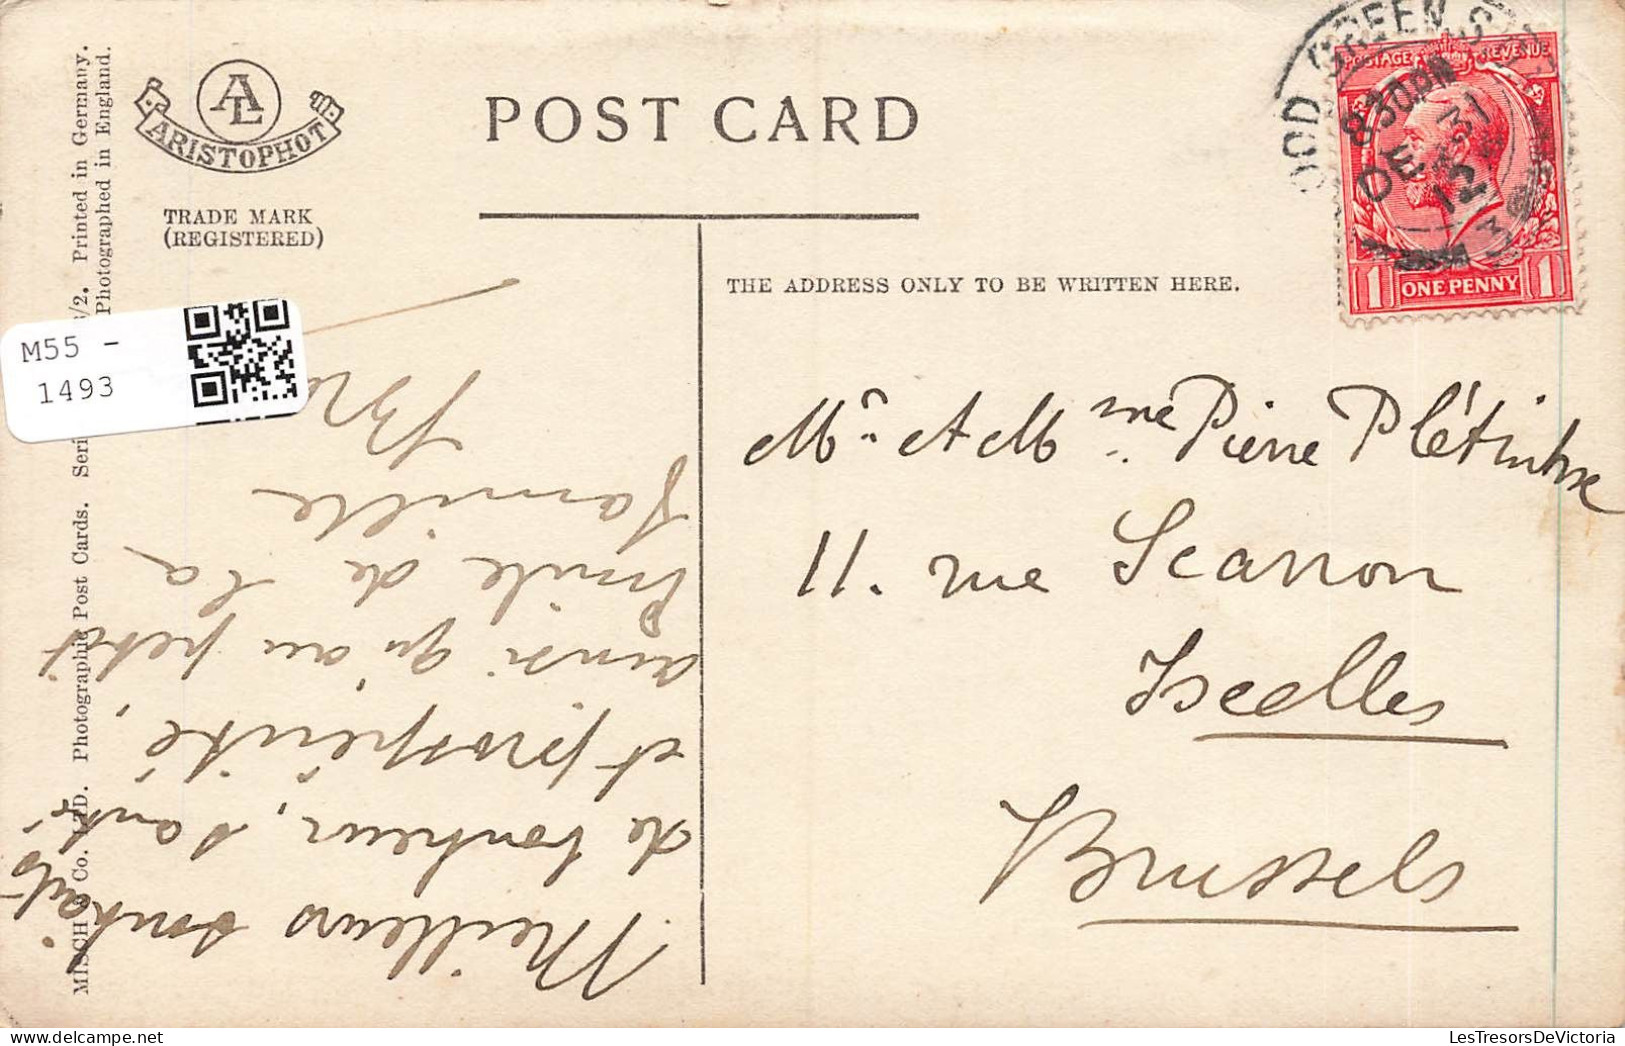 POST CARD
AL
ARISTOPHOT
TRADE MARK
(REGISTERED)
THE ADDRESS ONLY TO BE WRITTEN HERE.
MISCH & Co. LTD. Photographic Post Cards. Seri /2. Printed in Germany.
Photographed in England.
M55 -
1493
OOD GREEN
8 30PM
DE 31
12
3
POSTAGE REVENUE
1 ONE PENNY 1
Mr. et Mme Pierre Plétinckx
11. rue Scarron
Ixelles
Brussels
Meilleurs souhaits
de bonheur, santé
et prospérité,
ainsi qu'au petit
Emile de la
famille
LesTresorsDeVictoria